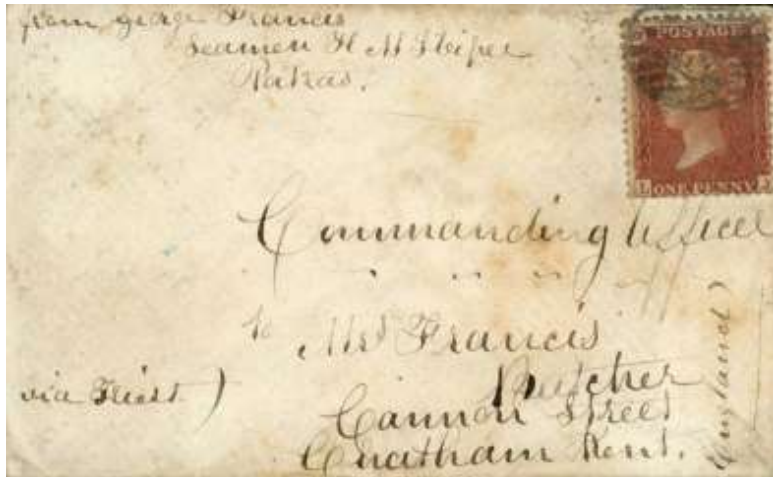 from george Francis
Seamen H M
Patras.
POSTAGE
ONE PENNY
Commanding Officer
" " "
to Mrs Francis
Butcher
Cannon Street
Chatham Kent.
England
via Triest